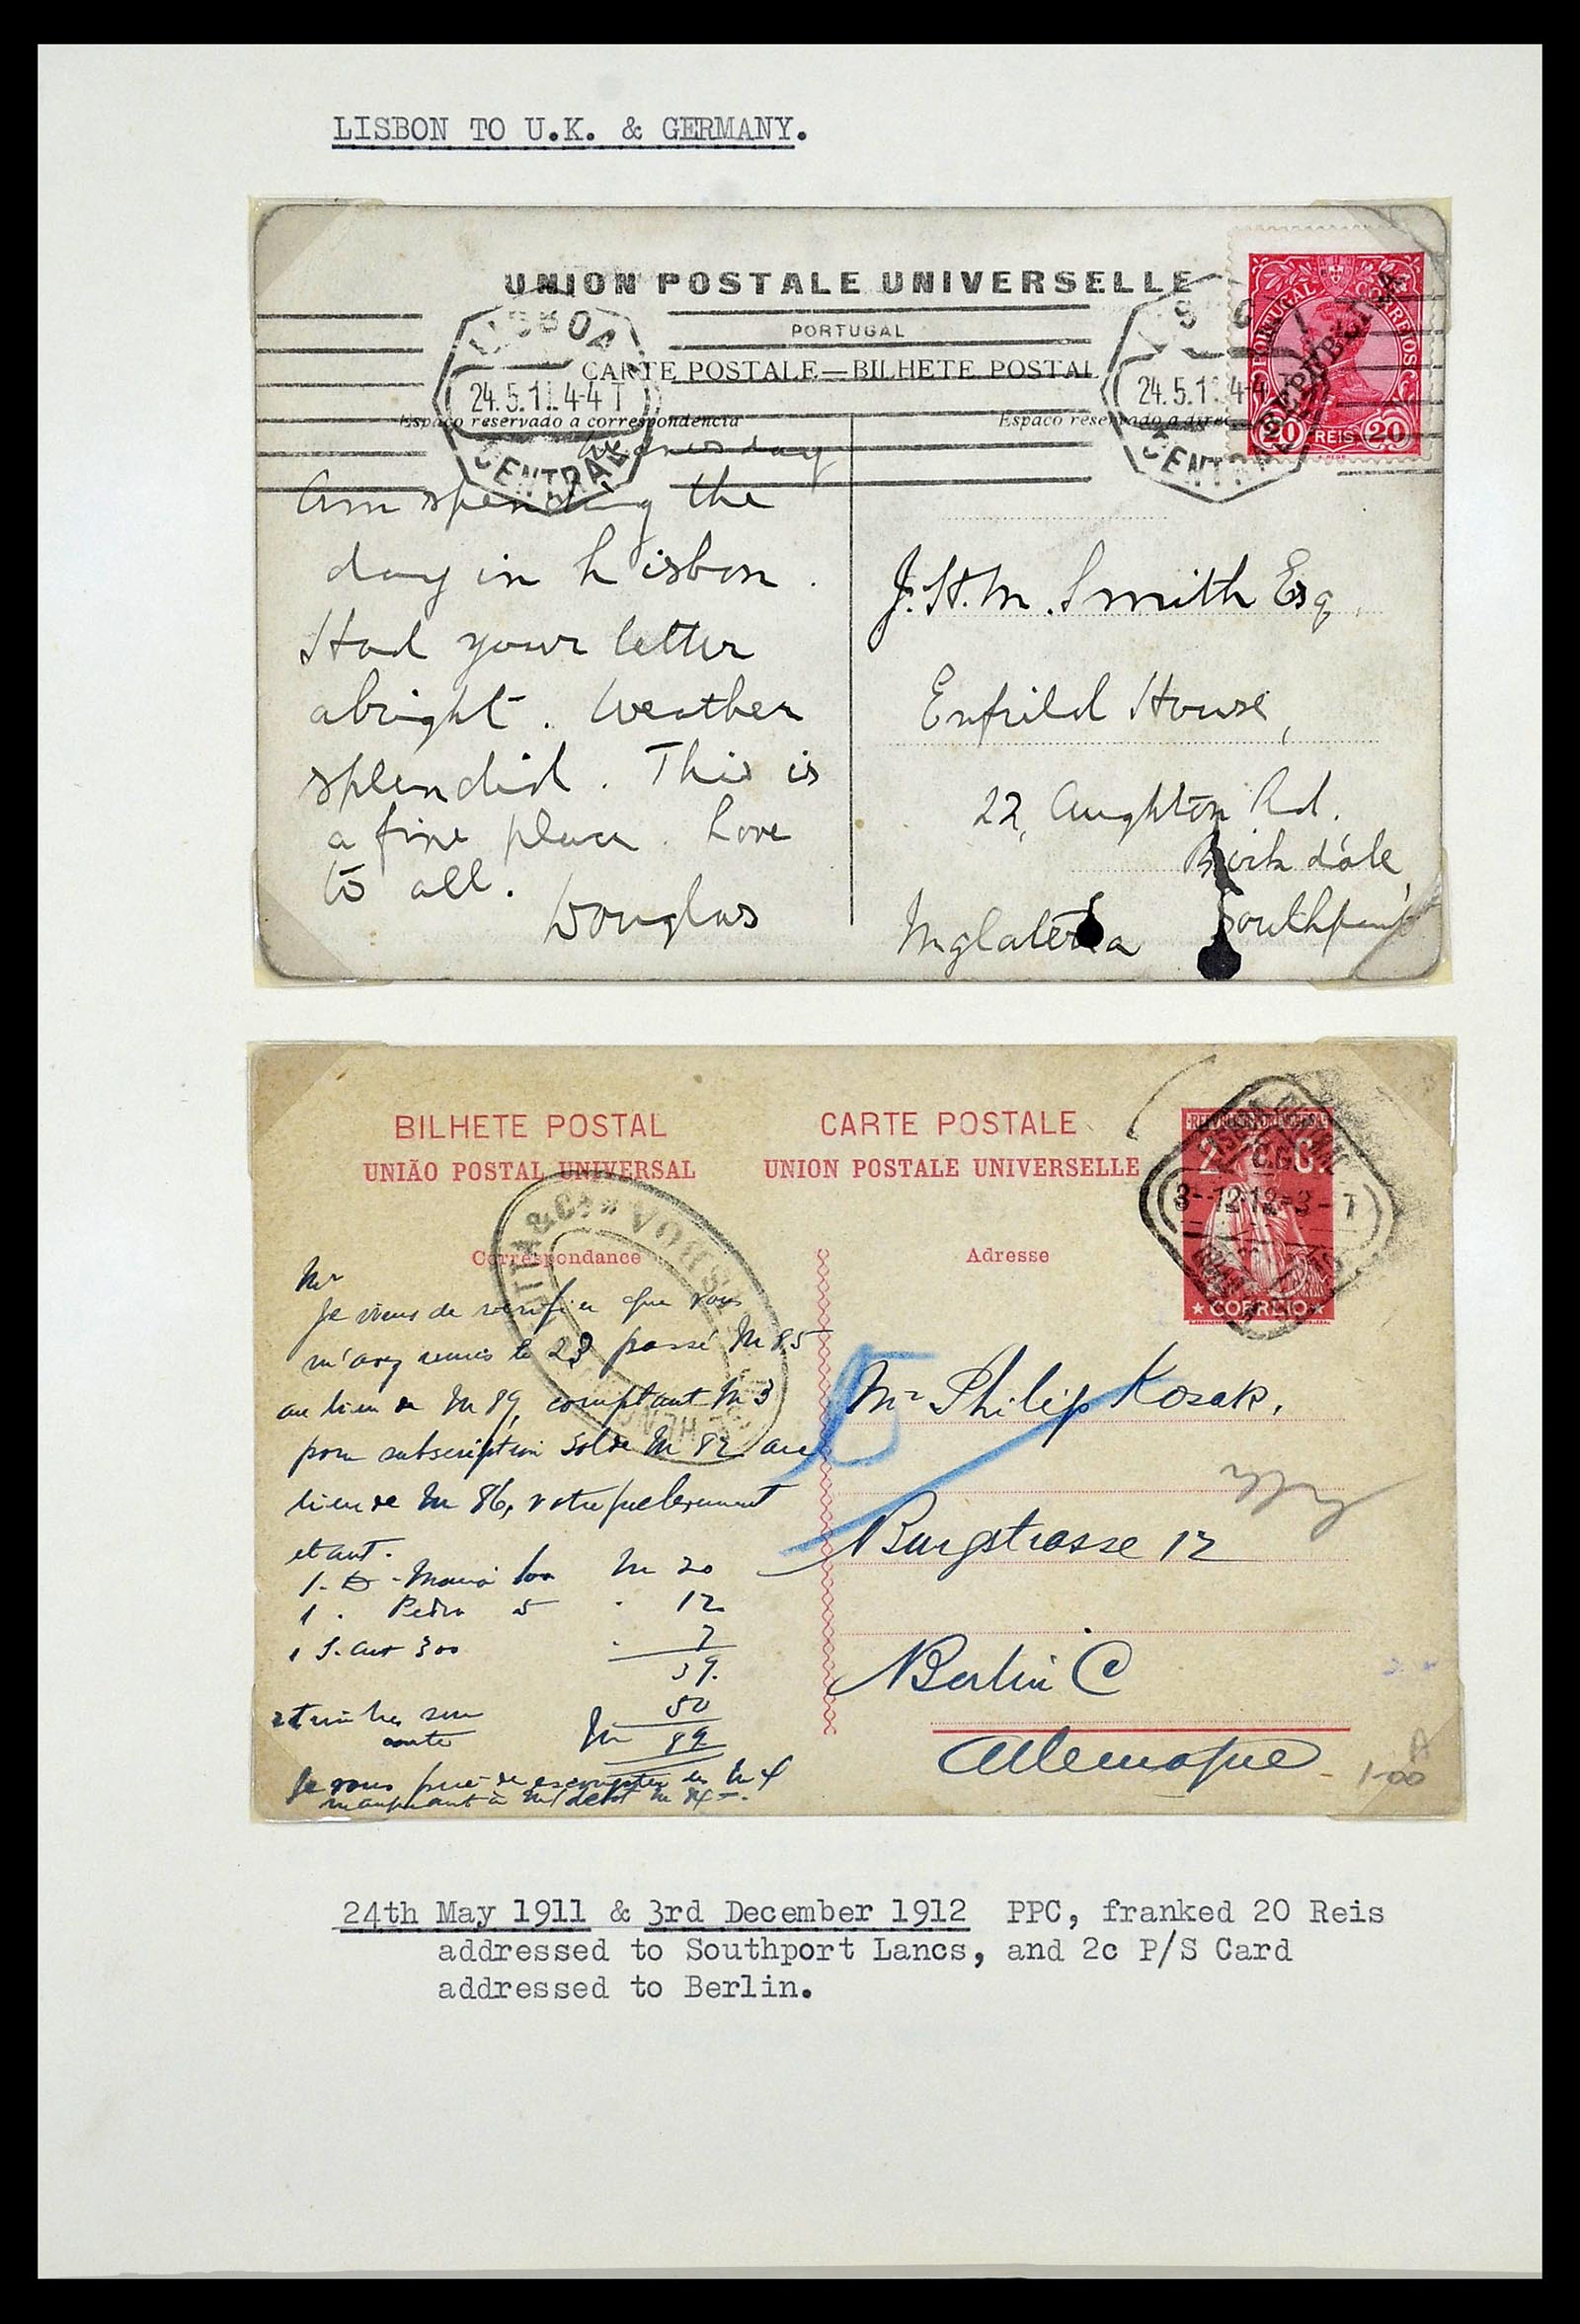 LISBON TO U.K. & GERMANY.
UNION POSTALE UNIVERSELLE
PORTUGAL
CARTE POSTALE—BILHETE POSTAL
LISBOA
24.5.11 4-4 T
CENTRAL
24.5.1 4-4
CENTRAL
PORTUGAL CORREIOS
REPUBLICA
20 REIS 20
Espaço reservado a correspondencia
Espaço reservado a
Wednesday
Am spending the
day in Lisbon.
Had your letter
alright. Weather
splendid. This is
a fine place. Love
to all.
Douglas
J. H. M. Smith Esq.
Enfield House,
22, Aughton Rd.
Birkdale,
Southport
Inglaterra
BILHETE POSTAL
UNIÃO POSTAL UNIVERSAL
CARTE POSTALE
UNION POSTALE UNIVERSELLE
2 C.
CORREIO
3-12 12=3-T
Correspondance
Adresse
Mr
Je viens de verifier que vous
m'avez remis le 23 passé M 85
au lieu de M 89, comptant M 3
pour subscription solde M 82 au
lieu de M 86, votre
etant.
1. Maria M 20
1. Pedro 5 12
1 300 7
39.
50
M 89
Je vous prie de M 4
Mr Philip Kosak.
Burgstrasse 12
Berlin C
Allemagne
1-00
A
24th May 1911 & 3rd December 1912 PPC, franked 20 Reis
addressed to Southport Lancs, and 2c P/S Card
addressed to Berlin.